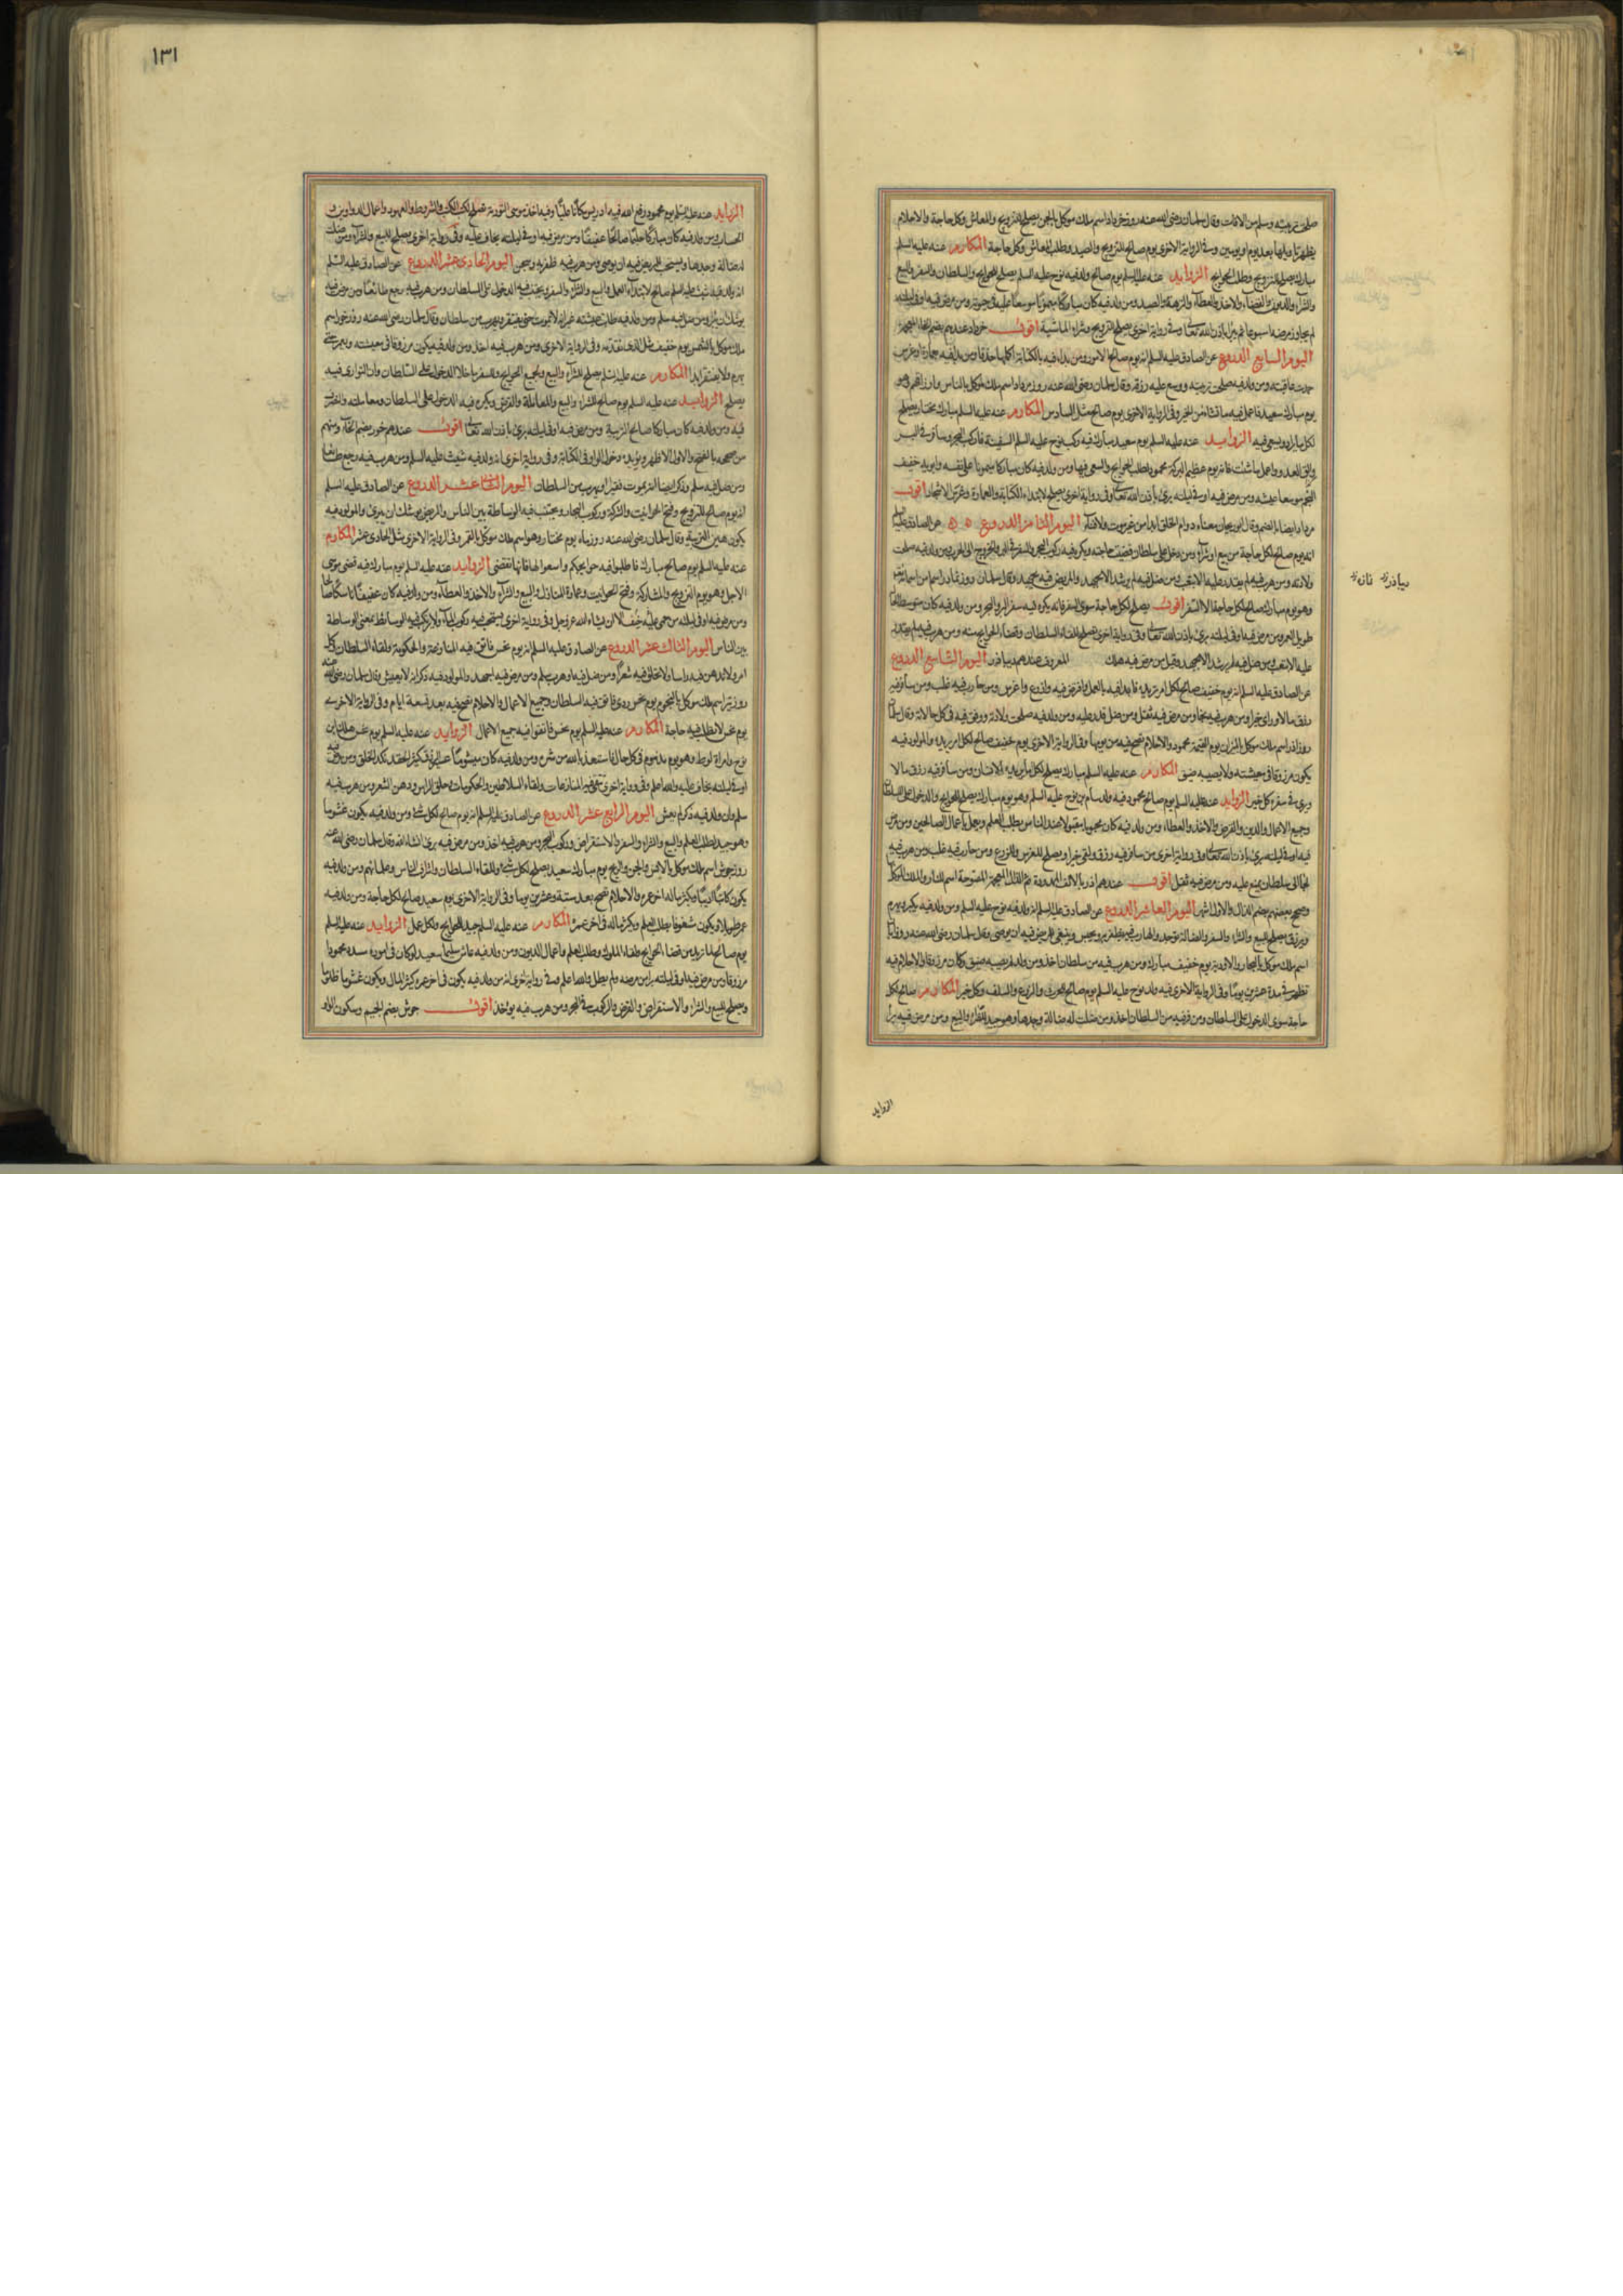 صلحت تربيته وسلم من الافات وقال سلمان رضى الله عنه روز خرداد اسم ملك موكل بالجن يصلح للتزويج والمعاش وكل حاجة والاحلام
يظهر تاويلها بعد يوم او يومين وفي الرواية الاخرى يوم صالح للتزويج والصيد وطلب المعاش وكل حاجة المكارم عنه عليه السلم
مبارك يصلح للتزويج وطلب الحوايج الزوايد عنه عليه السلم يوم صالح ولد فيه نوح عليه السلم يصلح للحوايج والسلطان والسفر والبيع
والشراء والديون والقضاء والاخذ والعطاء والنزهة والصيد ومن ولد فيه كان مباركا ميمونا موسعا عليه في حيوته ومن مرض فيه او في ليلته
لم يجاوز مرضه اسبوعا ثم يبرأ باذن الله تعالى وفي رواية اخرى يصلح للتزويج وشراء الماشية اقول خرداد عندهم بضم الخاء المعجمة
اليوم السابع الدروع عن الصادق عليه السلم انه يوم صالح لجميع الامور ومن بدا فيه بالكتابة اكملها حذقا ومن بدا فيه بعمارة او غرس
حمدت عاقبته ومن ولد فيه صلحت تربيته ووسع عليه رزقه وقال سلمان رضى الله عنه روز مرداد اسم ملك موكل بالناس وارزاقهم وهو
يوم مبارك سعيد فاعمل فيه ما تشاء من الخير وفي الرواية الاخرى يوم صالح مثل السادس المكارم عنه عليه السلم مبارك مختار يصلح
لكل ما يراد ويسعى فيه الزوايد عنه عليه السلم يوم سعيد مبارك فيه ركب نوح عليه السلم السفينة فاركب البحر وسافر في البر
والق العدو واعمل ما شئت فانه يوم عظيم البركة محمود لطلب الحوايج والسعى فيها ومن ولد فيه كان مباركا ميمونا على نفسه وابويه خفيف
النجم موسعا عيشه ومن مرض فيه او في ليلته برئ باذن الله تعالى وفي رواية اخرى يصلح لابتداء الكتابة والعمارة وغرس الاشجار اقول
مرداد ايضا بالضم وقال ابوريحان معناه دوام الخلق ابدا من غير موت ولا فناء اليوم الثامن الدروع عن الصادق عليه السلم
انه يوم صالح لكل حاجة من بيع او شراء ومن دخل على سلطان قضيت حاجته ويكره فيه ركوب البحر والسفر في البر والخروج الى الحرب ومن ولد فيه صلحت
ولادته ومن هرب فيه لم يقدر عليه الا بتعب ومن ضل فيه لم يرشد الا بجهد والمريض فيه يجهد وقال سلمان روز ديبادر اسم من اسماء الله
وهو يوم مبارك صالح لكل حاجة الا السفر اقول يصلح لكل حاجة سوى السفر فانه يكره فيه سفر البر والبحر ومن ولد فيه كان متوسط الحال
طويل العمر ومن مرض فيه او في ليلته برئ باذن الله تعالى وفي رواية اخرى يصلح للقاء السلطان وقضاء الحوايج منه ومن هرب فيه لم يقدر
عليه الا بتعب ومن ضل فيه لم يرشد الا بجهد وقيل من مرض فيه هلك المعروف عندهم ديباذر اليوم التاسع الدروع
عن الصادق عليه السلم انه يوم خفيف صالح لكل امر تريده فابدا فيه بالعمل واقترض فيه وازرع واغرس ومن حارب فيه غلب ومن سافر فيه
رزق مالا وراى خيرا ومن هرب فيه نجا ومن مرض فيه ثقل ومن ضل قدر عليه ومن ولد فيه صلحت ولادته ووفق فيه في كل حالاته وقال سلمان
روز اذر اسم ملك موكل بالنيران يوم القيمة محمود والاحلام تصح فيه من يومها وفي الرواية الاخرى يوم خفيف صالح لكل امر يريده والمولود فيه
يكون مرزوقا في معيشته ولا يصيبه ضيق المكارم عنه عليه السلم مبارك يصلح لكل ما يريده الانسان ومن سافر فيه رزق مالا
ويرى في سفره كل خير الزوايد عنه عليه السلم يوم صالح محمود فيه ولد سام بن نوح عليه السلم وهو يوم مبارك يصلح للحوايج والدخول على السلطان
وجميع الاعمال والدين والقرض والاخذ والعطاء ومن ولد فيه كان محبوبا مقبولا عند الناس يطلب العلم ويعمل باعمال الصالحين ومن مرض
فيه او في ليلته برئ باذن الله تعالى وفي رواية اخرى من سافر فيه رزق ولقى خيرا ويصلح للغرس والزرع ومن حارب فيه غلب ومن هرب فيه
لجا الى سلطان يمنع عليه ومن مرض فيه ثقل اقول عندهم اذر بالالف الممدودة ثم الذال المعجمة المفتوحة اسم للنار والملك الموكل
وصحح بعضهم بضم الذال والاول اشهر اليوم العاشر الدروع عن الصادق عليه السلم انه ولد فيه نوح عليه السلم ومن ولد فيه يكبر ويهرم
ويرزق يصلح للبيع والشراء والسفر والضالة توجد والهارب فيه يظفر به ويحبس وينبغى للمريض فيه ان يوصى وقال سلمان رضى الله عنه روز ابان
اسم ملك موكل بالبحار والاودية يوم خفيف مبارك ومن هرب فيه من سلطان اخذ ومن ولد لم يصبه ضيق وكان مرزوقا والاحلام فيه
تظهر في مدة عشرين يوما وفي الرواية الاخرى فيه ولد نوح عليه السلم يوم صالح للحرث والزرع والسلف وكل خير المكارم صالح لكل
حاجة سوى الدخول على السلطان ومن فر فيه من السلطان اخذ ومن ضلت له ضالة وجدها وهو جيد للشراء والبيع ومن مرض فيه برأ
ديباذر نازة
الزوايد
١٣١
الزوايد عنه عليه السلم يوم محمود رفع الله فيه ادريس مكانا عليا وفيه اخذ موسى التورية تصلح لكتب الكتب والشروط والعهود واعمال الدواوين و
الحساب ومن ولد فيه كان مباركا حليما صالحا عفيفا ومن مرض فيه او في ليلته يخاف عليه وفي رواية اخرى يصلح للبيع والشراء ومن ضلت
له ضالة وجدها ويستحب للمريض فيه ان يوصى ومن هرب فيه ظفر به وسجن اليوم الحادى عشر الدروع عن الصادق عليه السلم
انه ولد فيه شيث عليه السلم صالح لابتداء العمل والبيع والشراء والسفر ويجتنب فيه الدخول على السلطان ومن هرب فيه رجع طائعا ومن مرض فيه
يوشك ان يبرأ ومن ضل فيه سلم ومن ولد فيه طابت عيشته غير انه لا يموت حتى يفتقر ويهرب من سلطان وقال سلمان رضى الله عنه روز خور اسم
ملك موكل بالشمس يوم خفيف مثل الذى تقدمه وفي الرواية الاخرى ومن هرب فيه اخذ ومن ولد فيه يكون مرزوقا في معيشته ويعمر حتى
يهرم ولا يفتقر ابدا المكارم عنه عليه السلم يصلح للشراء والبيع ولجميع الحوايج وللسفر ما خلا الدخول على السلطان وان التوارى فيه
يصلح الزوايد عنه عليه السلم يوم صالح للشراء والبيع والمعاملة والقرض ويكره فيه الدخول على السلطان ومعاملته والتصرف
فيه ومن ولد فيه كان مباركا صالح التربية ومن مرض فيه او في ليلته برئ باذن الله تعالى اقول عندهم خور بضم الخاء ومنهم
من صححه بالفتح والاول الاظهر ويؤيده دخول الواو في الكتابة وفي رواية اخرى انه ولد فيه شيث عليه السلم ومن هرب فيه رجع طائعا
ومن ضل فيه سلم وذكر ايضا انه يموت فقيرا او يهرب من السلطان اليوم الثانى عشر الدروع عن الصادق عليه السلم
انه يوم صالح للتزويج وفتح الحوانيت والشركة وركوب البحار ويجتنب فيه الوساطة بين الناس والمريض يوشك ان يبرئ والمولود فيه
يكون هين التربية وقال سلمان رضى الله عنه روز ماه يوم مختار وهو اسم ملك موكل بالقمر وفي الرواية الاخرى مثل الحادى عشر المكارم
عنه عليه السلم يوم صالح مبارك فاطلبوا فيه حوايجكم واسعوا لها فانها تقضى الزوايد عنه عليه السلم يوم مبارك فيه قضى موسى
الاجل وهو يوم التزويج والمشاركة وفتح الحوانيت وعمارة المنازل والبيع والشراء والاخذ والعطاء ومن ولد فيه كان عفيفا ناسكا صالحا
ومن مرض فيه او في ليلته من حمى عليه خيف الا ان يشاء الله عز وجل وفي رواية اخرى يستحب فيه ركوب الماء ولا يركب فيه الوسائط بمعنى الوساطة
بين الناس اليوم الثالث عشر الدروع عن الصادق عليه السلم انه يوم نحس فاتق فيه المنازعة والحكومة ولقاء السلطان وكل
امر ولا تدهن فيه راسا ولا تحلق فيه شعرا ومن ضل فيه او هرب سلم ومن مرض فيه اجهد والمولود فيه ذكر انه لا يعيش وقال سلمان رضى الله عنه
روز تير اسم ملك موكل بالنجوم يوم نحس ردى فاتق فيه السلطان وجميع الاعمال والاحلام تصح فيه بعد تسعة ايام وفي الرواية الاخرى
يوم نحس لا تطلب فيه حاجة المكارم عنه عليه السلم يوم نحس فاتقوا فيه جميع الاعمال الزوايد عنه عليه السلم يوم نحس هلك ابن
نوح وامراة لوط وهو يوم مذموم في كل حال فاستعذ بالله من شره ومن ولد فيه كان ميشوما عسر الرزق كثير الحقد نكد الخلق ومن مرض فيه
او في ليلته يخاف عليه والله اعلم وفي رواية اخرى تتقى فيه المنازعات ولقاء السلاطين والحكومات وحلق الراس ودهن الشعر ومن هرب فيه
سلم وان ولد فيه ذكر لم يعش اليوم الرابع عشر الدروع عن الصادق عليه السلم انه يوم صالح لكل شئ ومن ولد فيه يكون غشوما
وهو جيد لطلب العلم والبيع والشراء والسفر والاستقراض وركوب البحر ومن هرب فيه اخذ ومن مرض فيه برئ انشاء الله وقال سلمان رضى الله عنه
روز جوش اسم ملك موكل بالانس والجن والريح يوم مبارك سعيد يصلح لكل شئ وللقاء السلطان واشراف الناس وعلمائهم ومن ولد فيه
يكون كاتبا اديبا ويكثر ماله اخر عمره والاحلام تصح بعد ستة وعشرين يوما وفي الرواية الاخرى يوم سعيد صالح لكل حاجة ومن ولد فيه
عمر طويلا ويكون مشغوفا بطلب العلم ويكثر ماله في اخر عمره المكارم عنه عليه السلم جيد للحوايج ولكل عمل الزوايد عنه عليه السلم
يوم صالح لما تريد من قضاء الحوايج ولقاء الملوك وطلب العلم واعمال الديون ومن ولد فيه عاش سليما سعيدا وكان في اموره مسددا محمودا
مرزوقا ومن مرض فيه او في ليلته برا من مرضه ولم يطل والله اعلم وفي رواية اخرى انه من ولد فيه يكون في اخر عمره كثير المال ويكون غشوما ظلوما
ويصلح للبيع والشراء والاستقراض والقرض والركوب في البحر ومن هرب فيه يوخذ اقول جوش بضم الجيم وسكون الواو